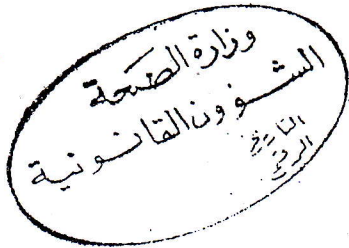 وزارة الصحة
الشؤون القانونية
التاريخ
الرقم